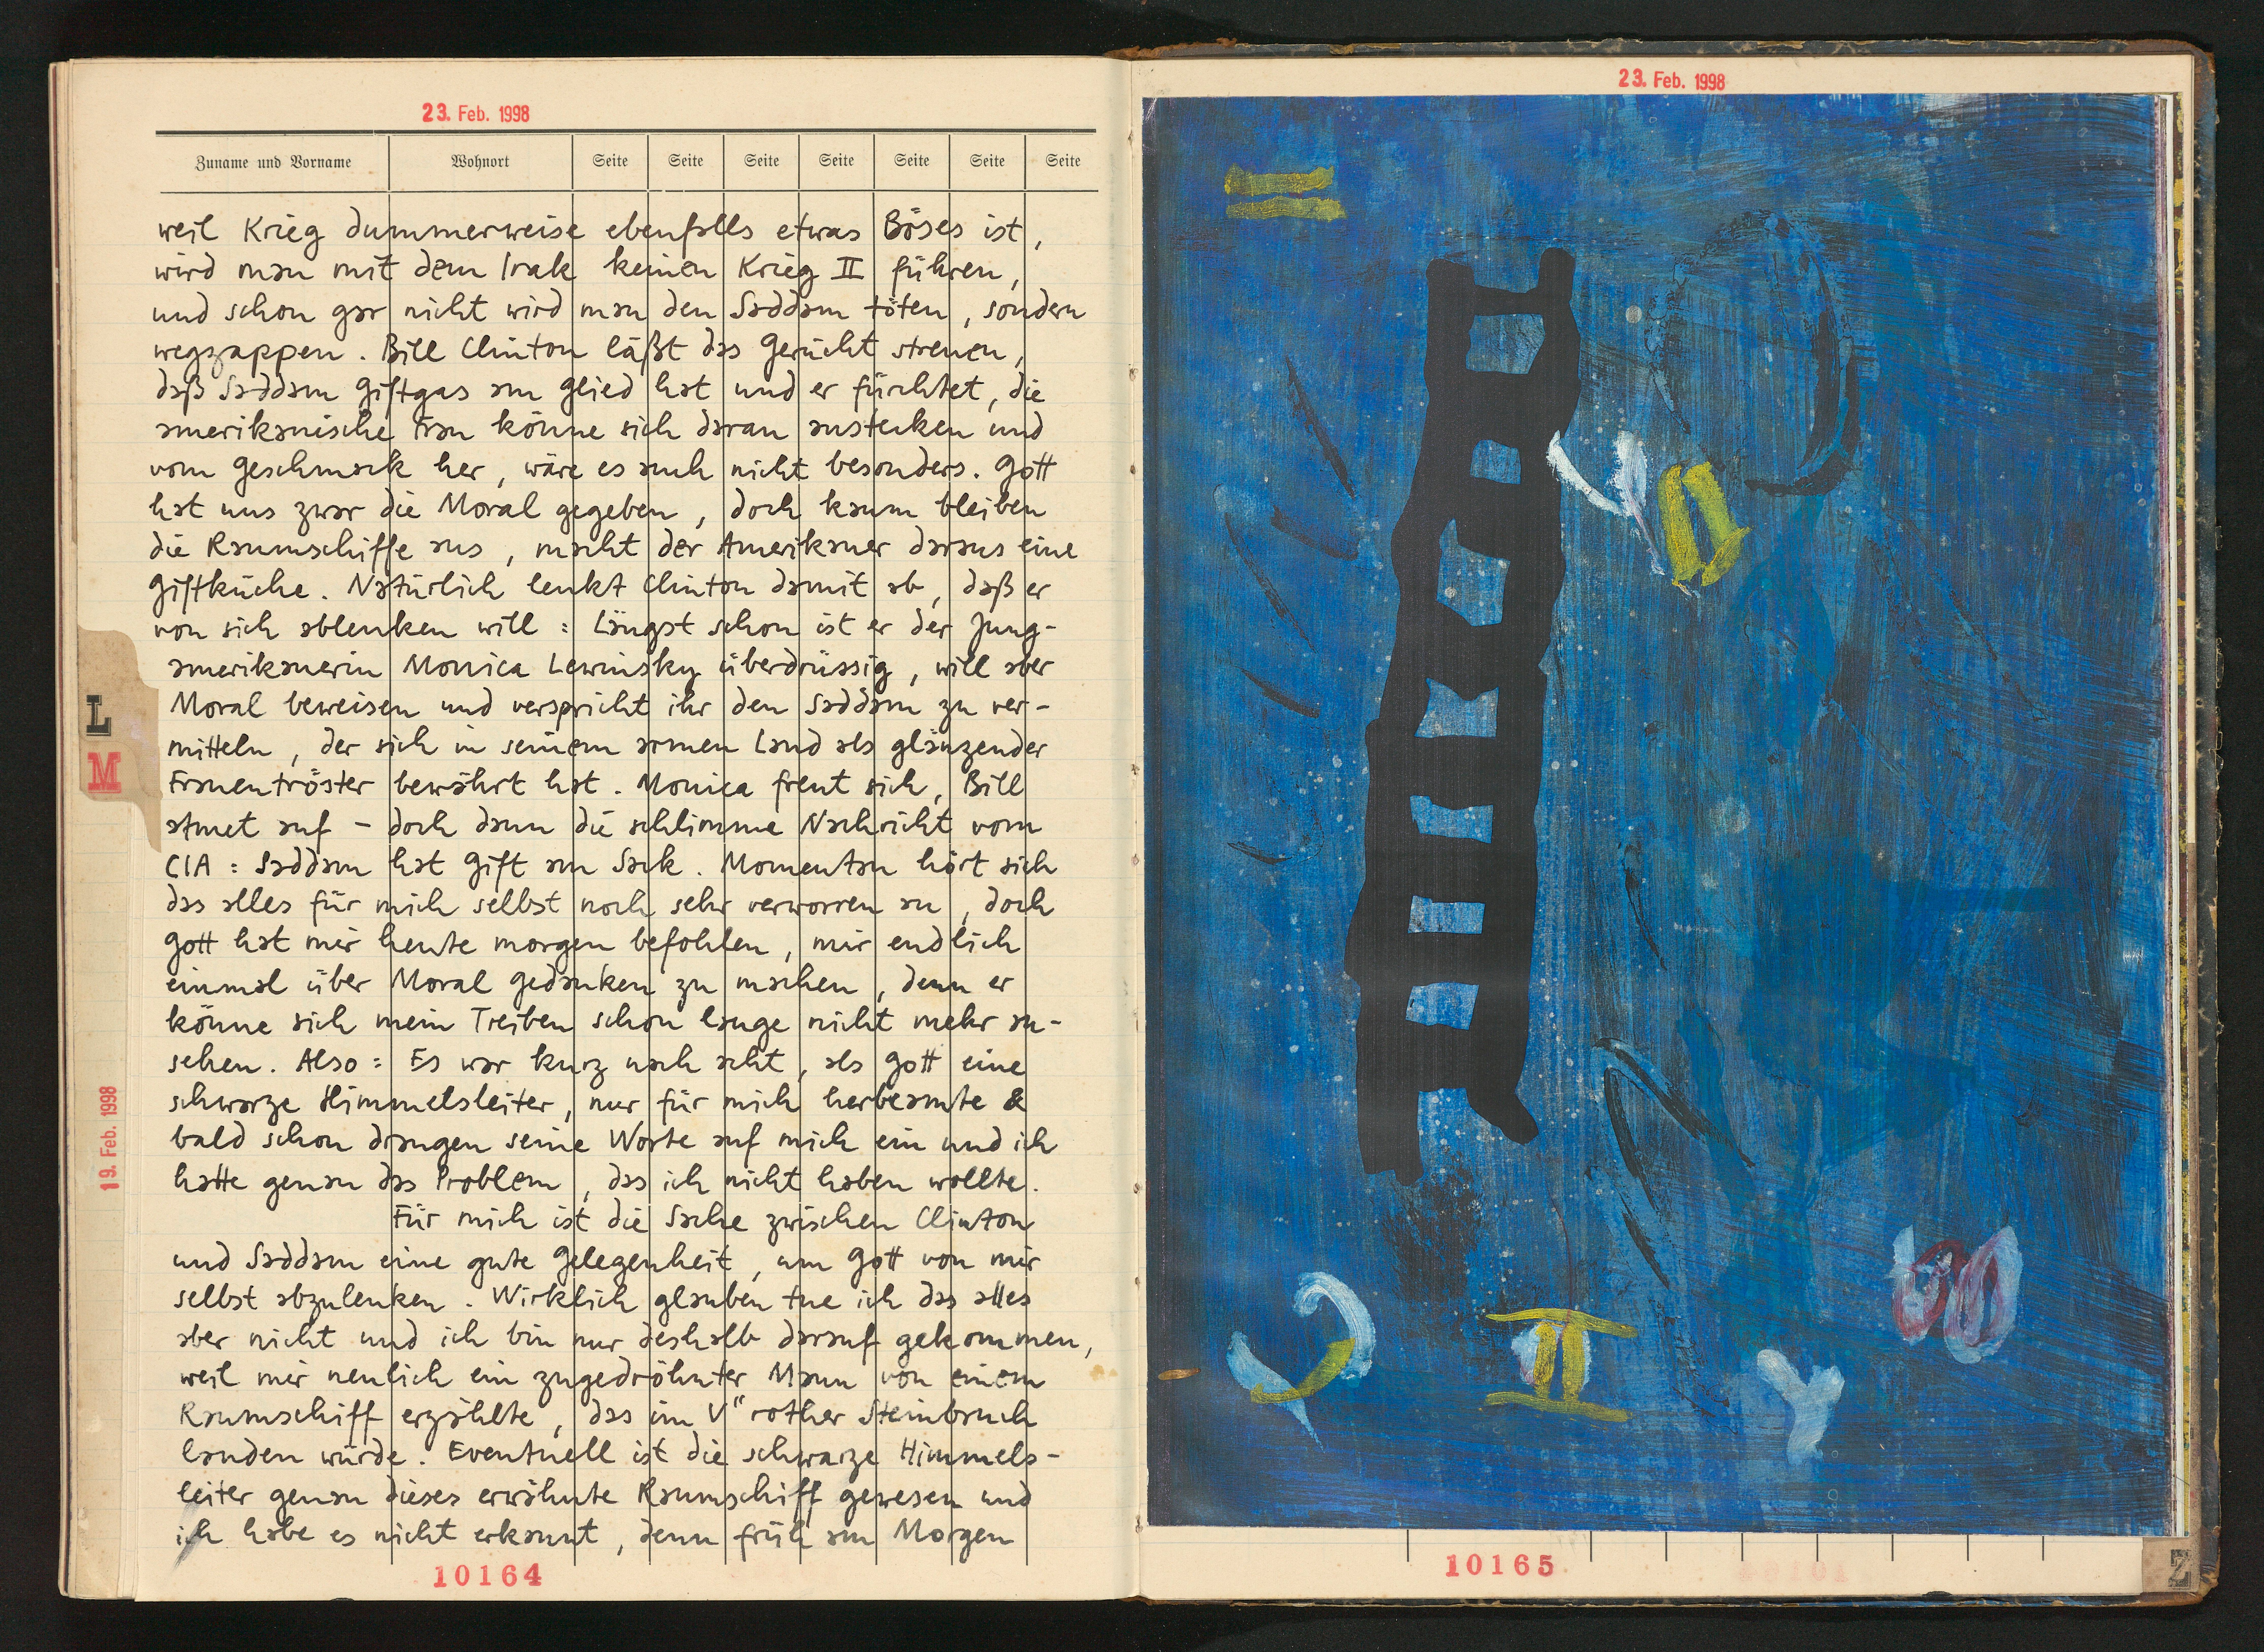 23. Feb. 1998
Zuname und Vorname Wohnort Seite Seite Seite Seite Seite Seite Seite
weil Krieg dummerweise ebenfalls etwas Böses ist,
wird man mit dem Irak keinen Krieg II führen,
und schon gar nicht wird man den Saddam töten, sondern
wegzappen. Bill Clinton läßt das Gerücht streuen,
daß Saddam Giftgas am Glied hat und er fürchtet, die
amerikanische Frau könne sich daran anstecken und
vom Geschmack her, wäre es auch nicht besonders. Gott
hat uns zwar die Moral gegeben, doch kaum bleiben
die Raumschiffe aus, macht der Amerikaner daraus eine
Giftküche. Natürlich lenkt Clinton damit ab, daß er
von sich ablenken will: Längst schon ist er der Jung-
amerikanerin Monica Lewinsky überdrüssig, will aber
Moral beweisen und verspricht ihr den Saddam zu ver-
mitteln, der sich in seinem armen Land als glänzender
Frauentröster bewährt hat. Monica freut sich, Bill
atmet auf – doch dann die schlimme Nachricht vom
CIA: Saddam hat Gift am Sack. Momentan hört sich
das alles für mich selbst noch sehr verworren an, doch
Gott hat mir heute morgen befohlen, mir endlich
einmal über Moral Gedanken zu machen, denn er
könne sich mein Treiben schon lange nicht mehr an-
sehen. Also: Es war kurz nach acht, als Gott eine
schwarze Himmelsleiter, nur für mich herbeamte &
bald schon drangen seine Worte auf mich ein und ich
hatte genau das Problem, das ich nicht haben wollte.
Für mich ist die Sache zwischen Clinton
und Saddam eine gute Gelegenheit, um Gott von mir
selbst abzulenken. Wirklich glauben tue ich das alles
aber nicht und ich bin nur deshalb darauf gekommen,
weil mir neulich ein zugedröhnter Mann von einem
Raumschiff erzählte, das im V" rother Steinbruch
landen würde. Eventuell ist die schwarze Himmels-
leiter genau dieses erwähnte Raumschiff gewesen und
ich habe es nicht erkannt, denn früh am Morgen
10164
L
M
19. Feb. 1998
23. Feb. 1998
10165
Z